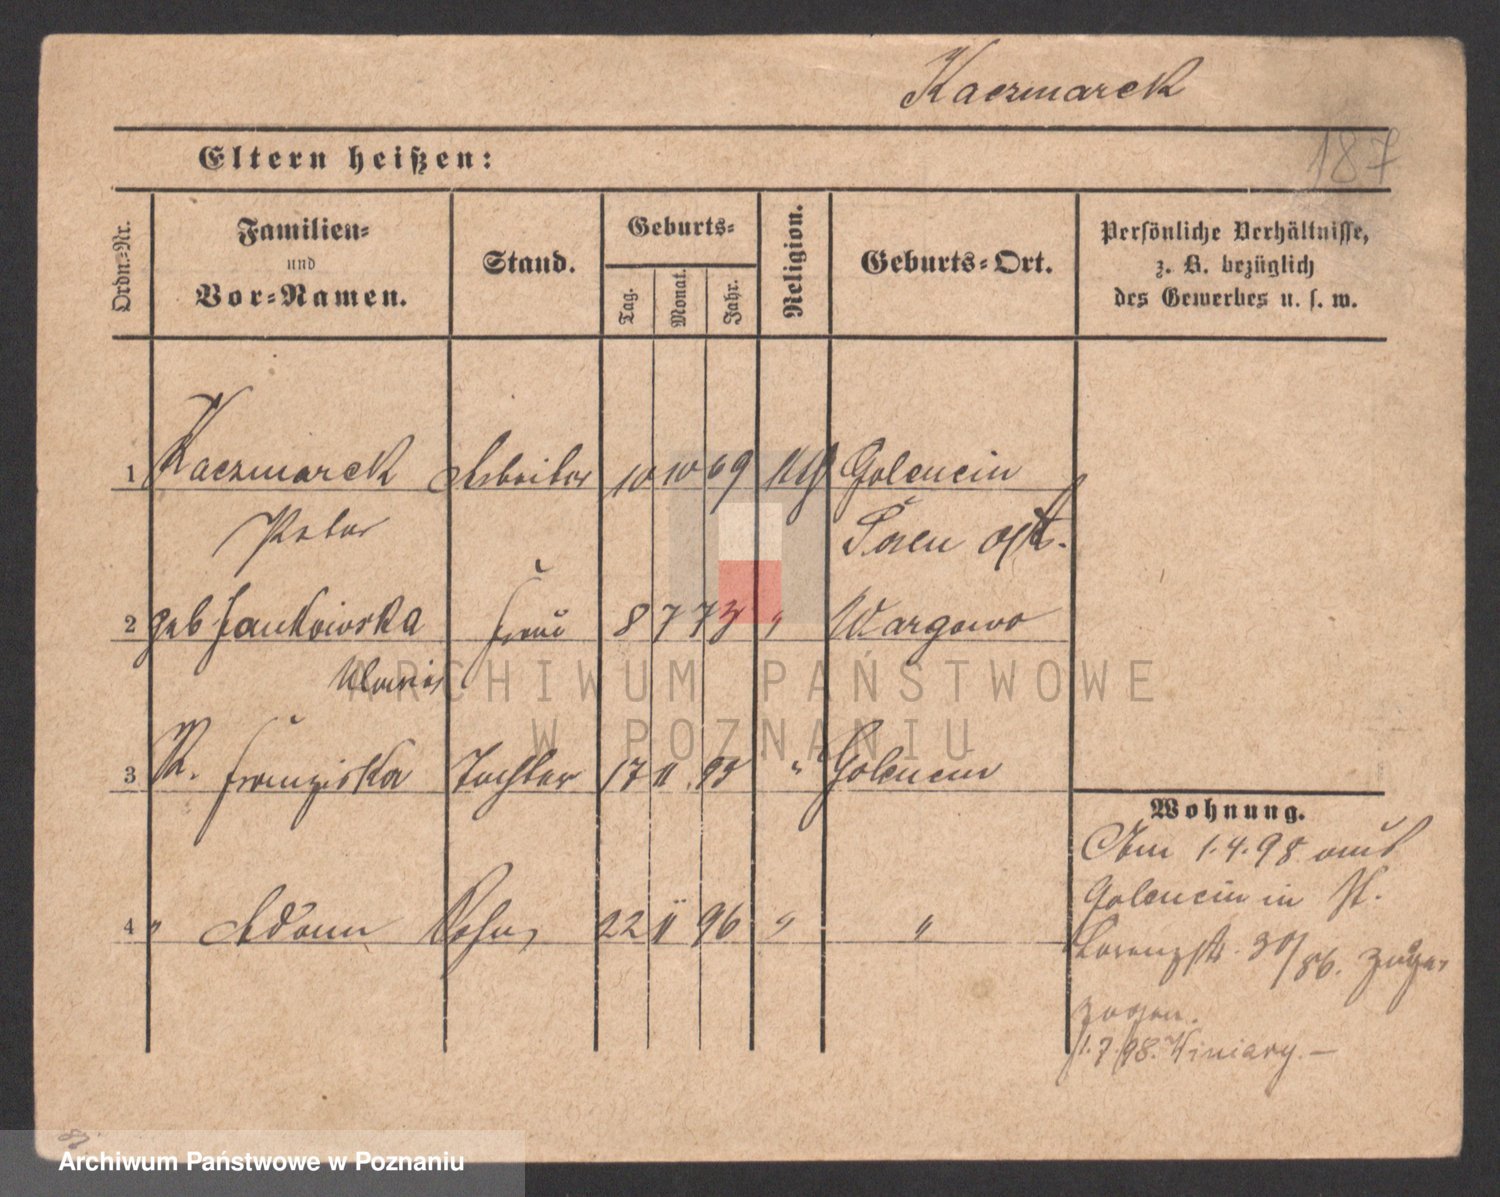 Kaczmarek
187
Eltern heißen:
Ordn.-Nr.
Familien-
und
Vor-Namen.
Stand.
Geburts-
Tag.
Monat.
Jahr.
Religion.
Geburts-Ort.
Persönliche Verhältnisse,
z. B. bezüglich
des Gewerbes u. s. w.
1 Kaczmarek Arbeiter 10 10 69 Golencin
Peter Posen Ost.
2 geb Jankowska Frau 8 7 73 " Wargowo
3 K. Franziska Tochter 17 11 95 " Golencin
4 " Adam Sohn 22 11 96 " "
Wohnung.
Am 1.4.98 aus
Golencin in St.
Lorenzstr. 30/86. zuge
zogen.
1.7.98. Winiary. —
ARCHIWUM PAŃSTWOWE
W POZNANIU
Archiwum Państwowe w Poznaniu